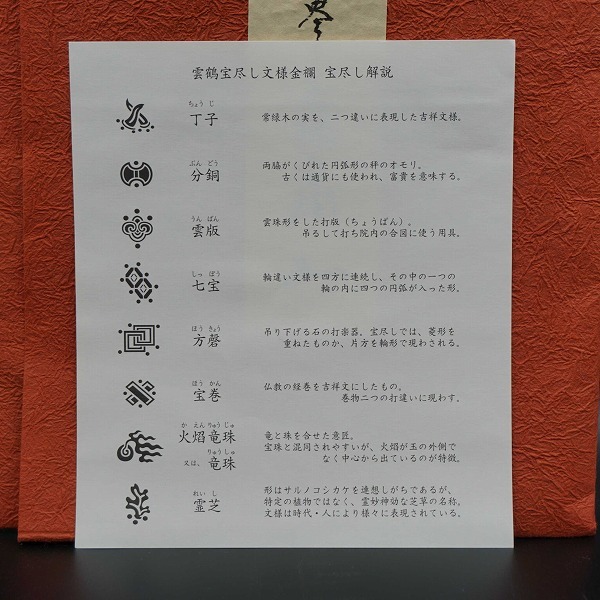 雲鶴宝尽し文様金襴 宝尽し解説
ちょう じ
丁子
常緑木の実を、二つ違いに表現した吉祥文様。
ぶん どう
分銅
両脇がくびれた円弧形の秤のオモリ。
古くは通貨にも使われ、富貴を意味する。
うん ばん
雲版
雲珠形をした打版(ちょうばん)。
吊るして打ち院内の合図に使う用具。
しっ ぽう
七宝
輪違い文様を四方に連続し、その中の一つの
輪の内に四つの円弧が入った形。
ほう きょう
方磬
吊り下げる石の打楽器。宝尽しでは、菱形を
重ねたものか、片方を輪形で現わされる。
ほう かん
宝巻
仏教の経巻を吉祥文にしたもの。
巻物二つの打違いに現わす。
か えん りゅう じゅ
火焰竜珠
りゅう しゅ
又は、竜珠
竜と珠を合せた意匠。
宝珠と混同されやすいが、火焰が玉の外側で
なく中心から出ているのが特徴。
れい し
霊芝
形はサルノコシカケを連想しがちであるが、
特定の植物ではなく、霊妙神効な芝草の名称。
文様は時代・人により様々に表現されている。